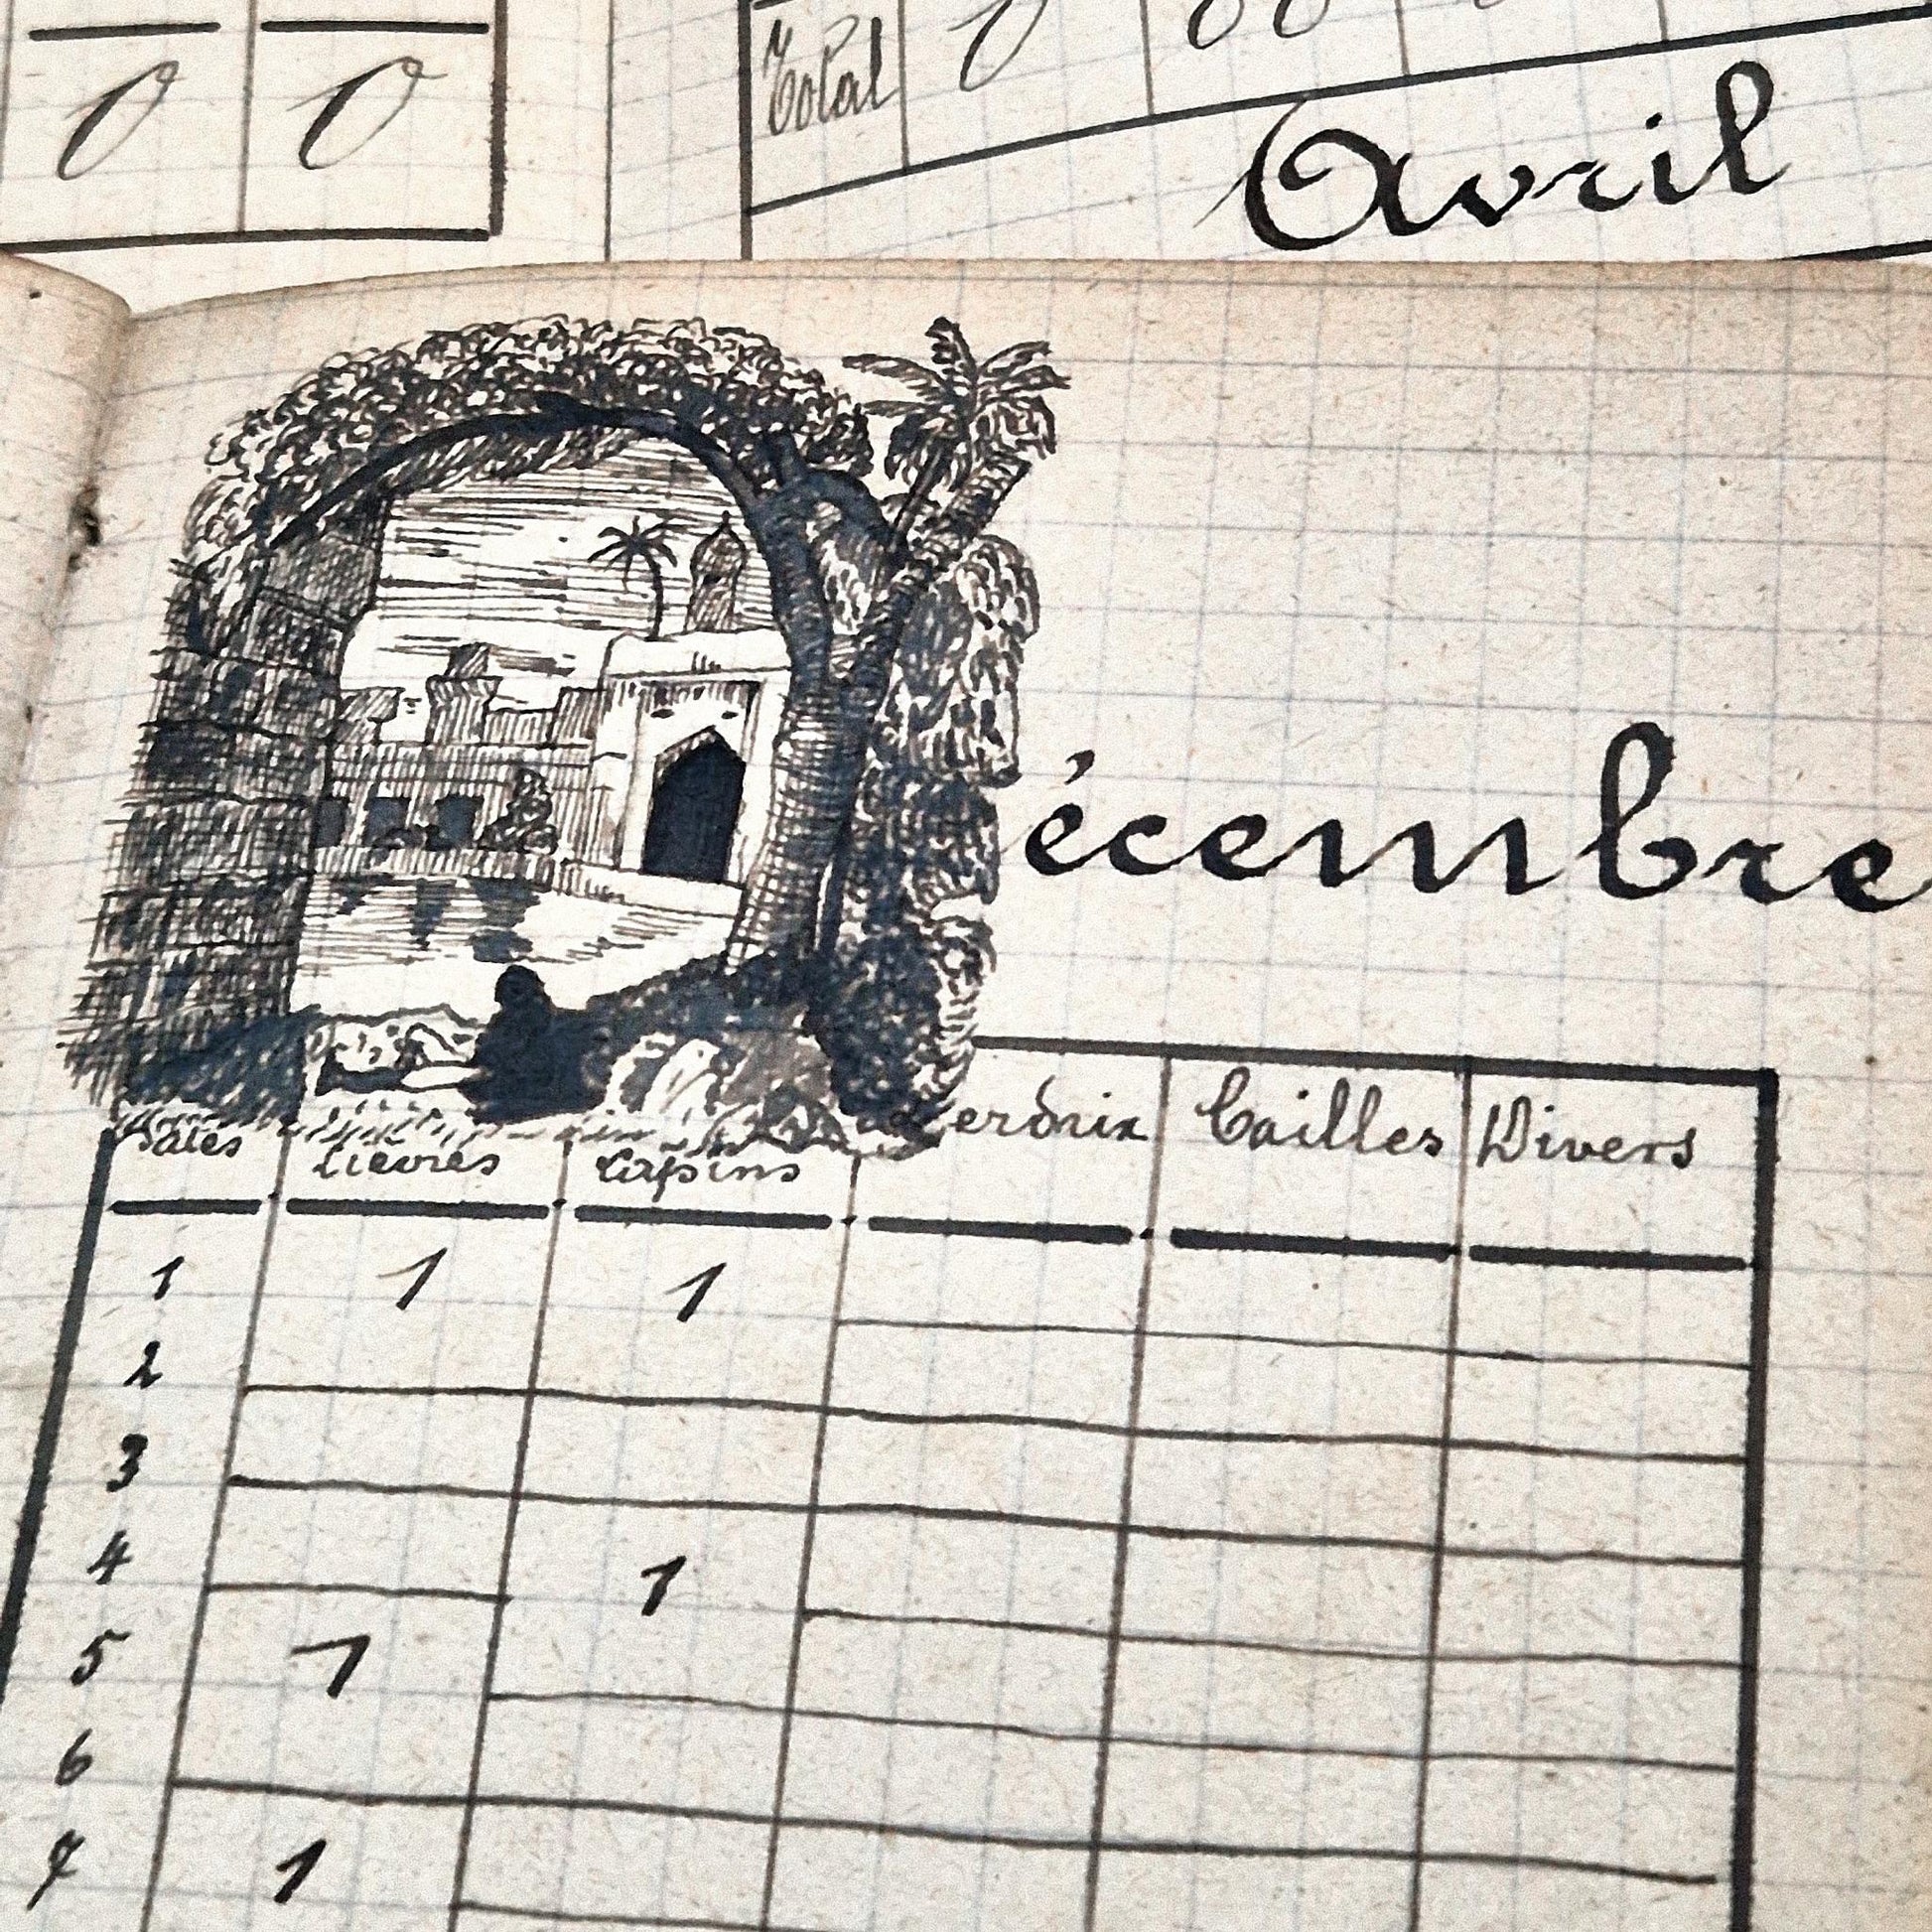 0 0
Total 0 00
Avril
écembre
Dates Lièvres Lapins Perdrix Cailles Divers
1 1 1
2
3
4 1
5 1
6
7 1